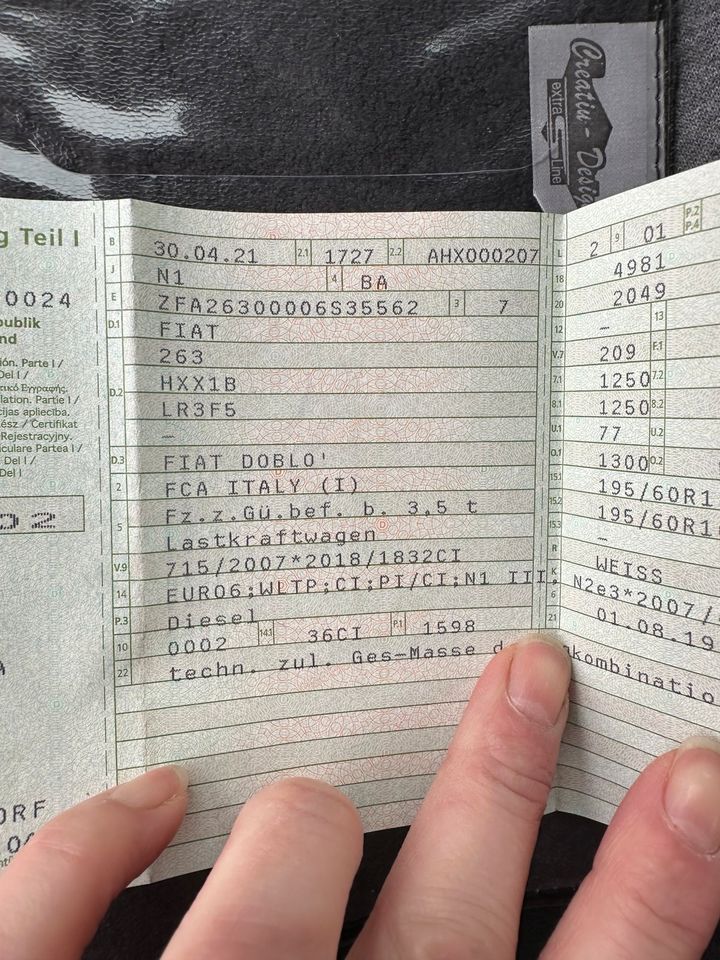 Creativ-Desig
extra
Line
g Teil I
0024
publik
nd
ión. Parte I /
Del I /
τικό Εγγραφής.
lation. Partie I /
cijas apliecība.
ész / Certificat
Rejestracyjny.
iculare Partea I /
Del I /
Del I
B 30.04.21 2.1 1727 2.2 AHX000207
J N1 4 BA
E ZFA26300006S35562 3 7
D.1 FIAT
263
D.2 HXX1B
LR3F5
–
D.3 FIAT DOBLO'
2 FCA ITALY (I)
5 Fz.z.Gü.bef. b. 3,5 t
Lastkraftwagen
V.9 715/2007*2018/1832CI
14 EURO6;WLTP;CI;PI/CI;N1 III; N2e3*2007/
P.3 Diesel
10 0002 14.1 36CI P.1 1598
22 techn. zul. Ges-Masse kombinatio
L 2 9 01 P.2 P.4
18 4981
20 2049
12 – 13
V.7 209 F.1
7.1 1250 7.2
8.1 1250 8.2
U.1 77 U.2
O.1 1300 O.2
15.1 195/60R1
15.2 195/60R1
15.3 –
R WEISS
K
6 01.08.19
21
ORF